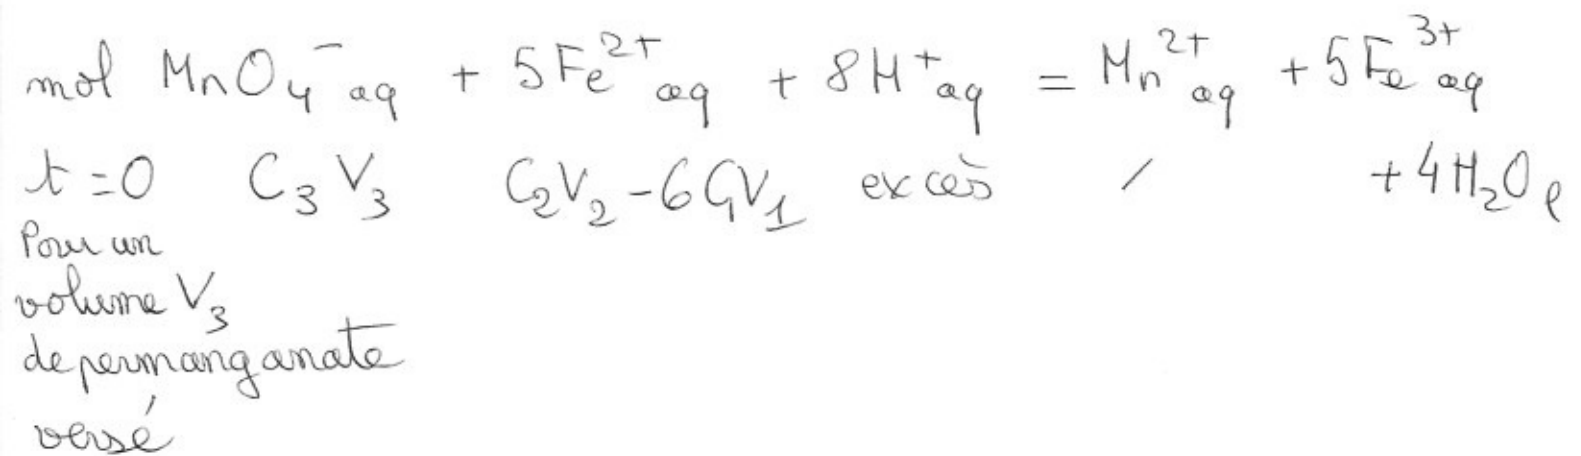 mol MnO₄⁻aq + 5Fe²⁺aq + 8H⁺aq = Mn²⁺aq + 5Fe³⁺aq
t=0 C₃V₃ C₂V₂-6C₁V₁ excès / +4H₂Oℓ
Pour un
volume V₃
de permanganate
versé